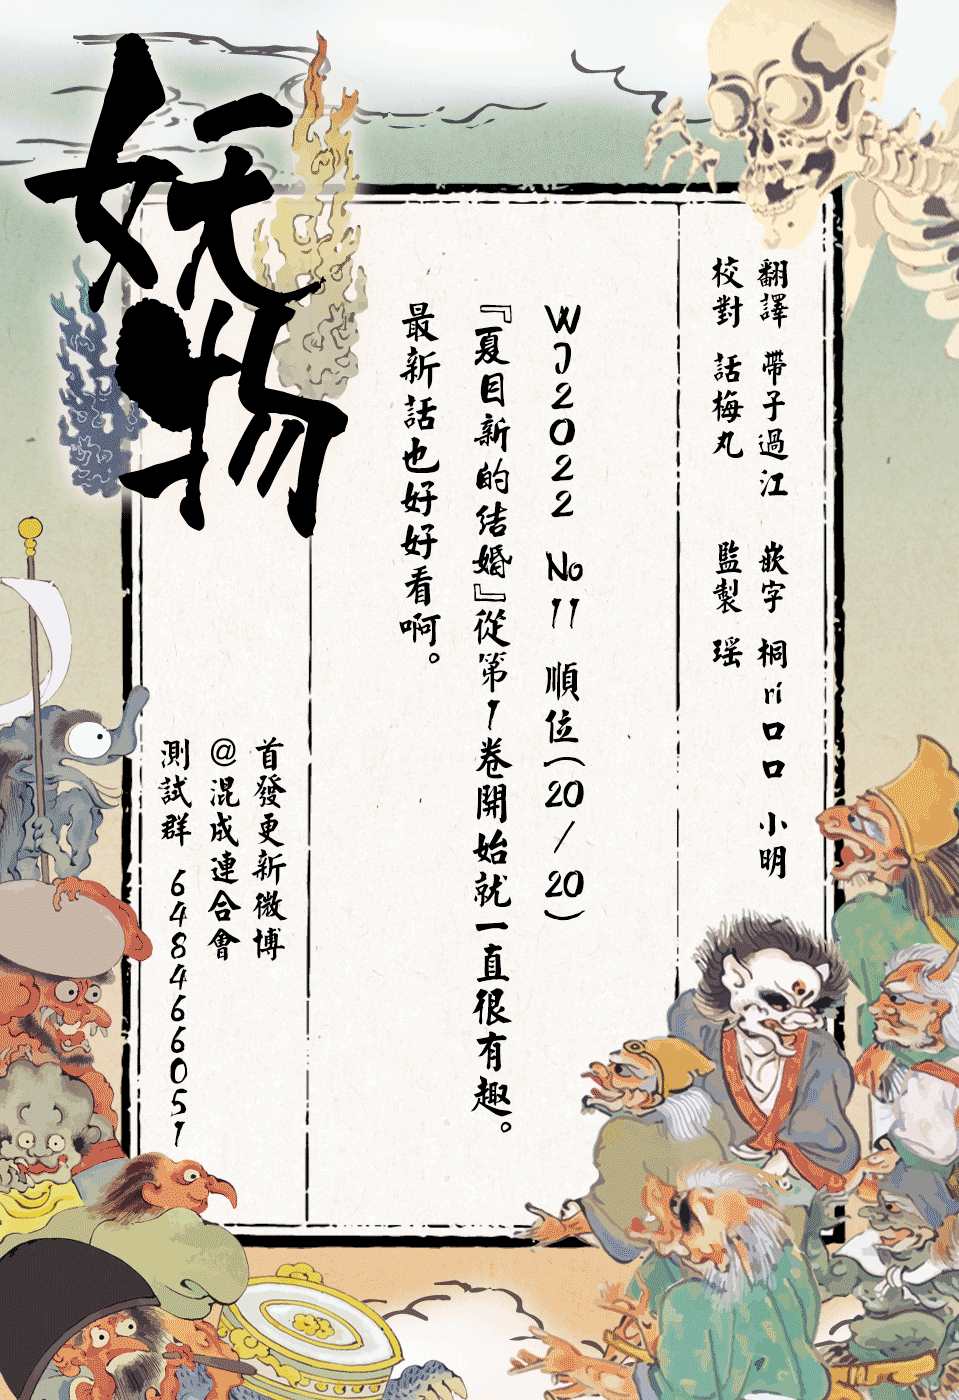 翻譯 帶子過江 嵌字 桐ri口口 小明
校對 話梅丸 監製 瑶
WJ2022 No11 順位(20/20)
『夏目新的結婚』從第1卷開始就一直很有趣。
最新話也好好看啊。
妖物
首發更新微博
@混成連合會
測試群 648466051